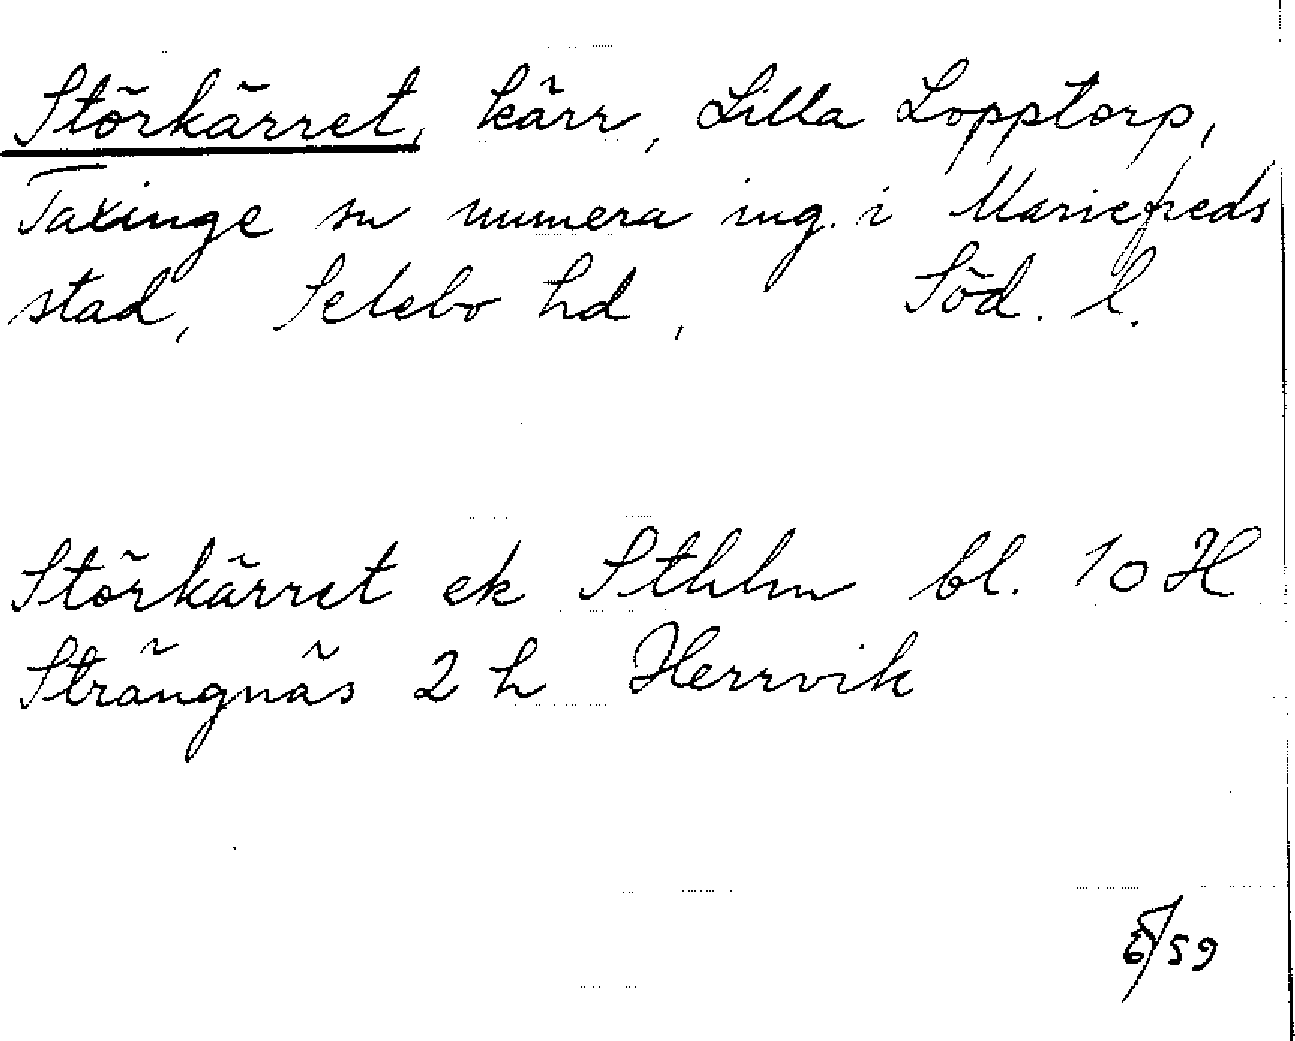 Störkärret, kärr, Lilla Lopptorp,
Taxinge sn numera ing. i Mariefreds
stad, Selebo hd, Söd. l.
Störkärret ek Sthlm bl. 10 H
Strängnäs 2 h Herrvik
/59